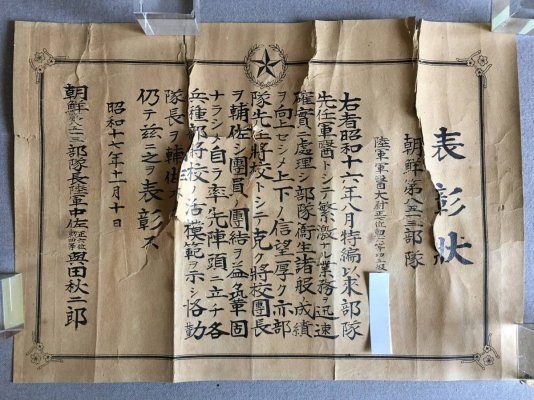 表彰狀
朝鮮第二三部隊
陸軍軍醫大尉正七位勳
右者昭和十六年八月特編以來部隊
先任軍醫トシテ繁激ナル業務ヲ迅速
確實ニ處理シ部隊衛生諸般ノ成績
ヲ向上セシメ上下ノ信望厚ク亦部
隊先任將校トシテ克ク將校團長
ヲ輔佐シ團員ノ團結ヲ益鞏固
ナラシメ自ラ率先陣頭ニ立チ各
兵種部將校ノ活模範ヲ示シ恪勤
隊長ヲ輔佐ス
仍テ茲ニ之ヲ表彰ス
昭和十七年十一月十日
朝鮮第二三部隊長陸軍中佐正六位勳四等 與田秋二郎